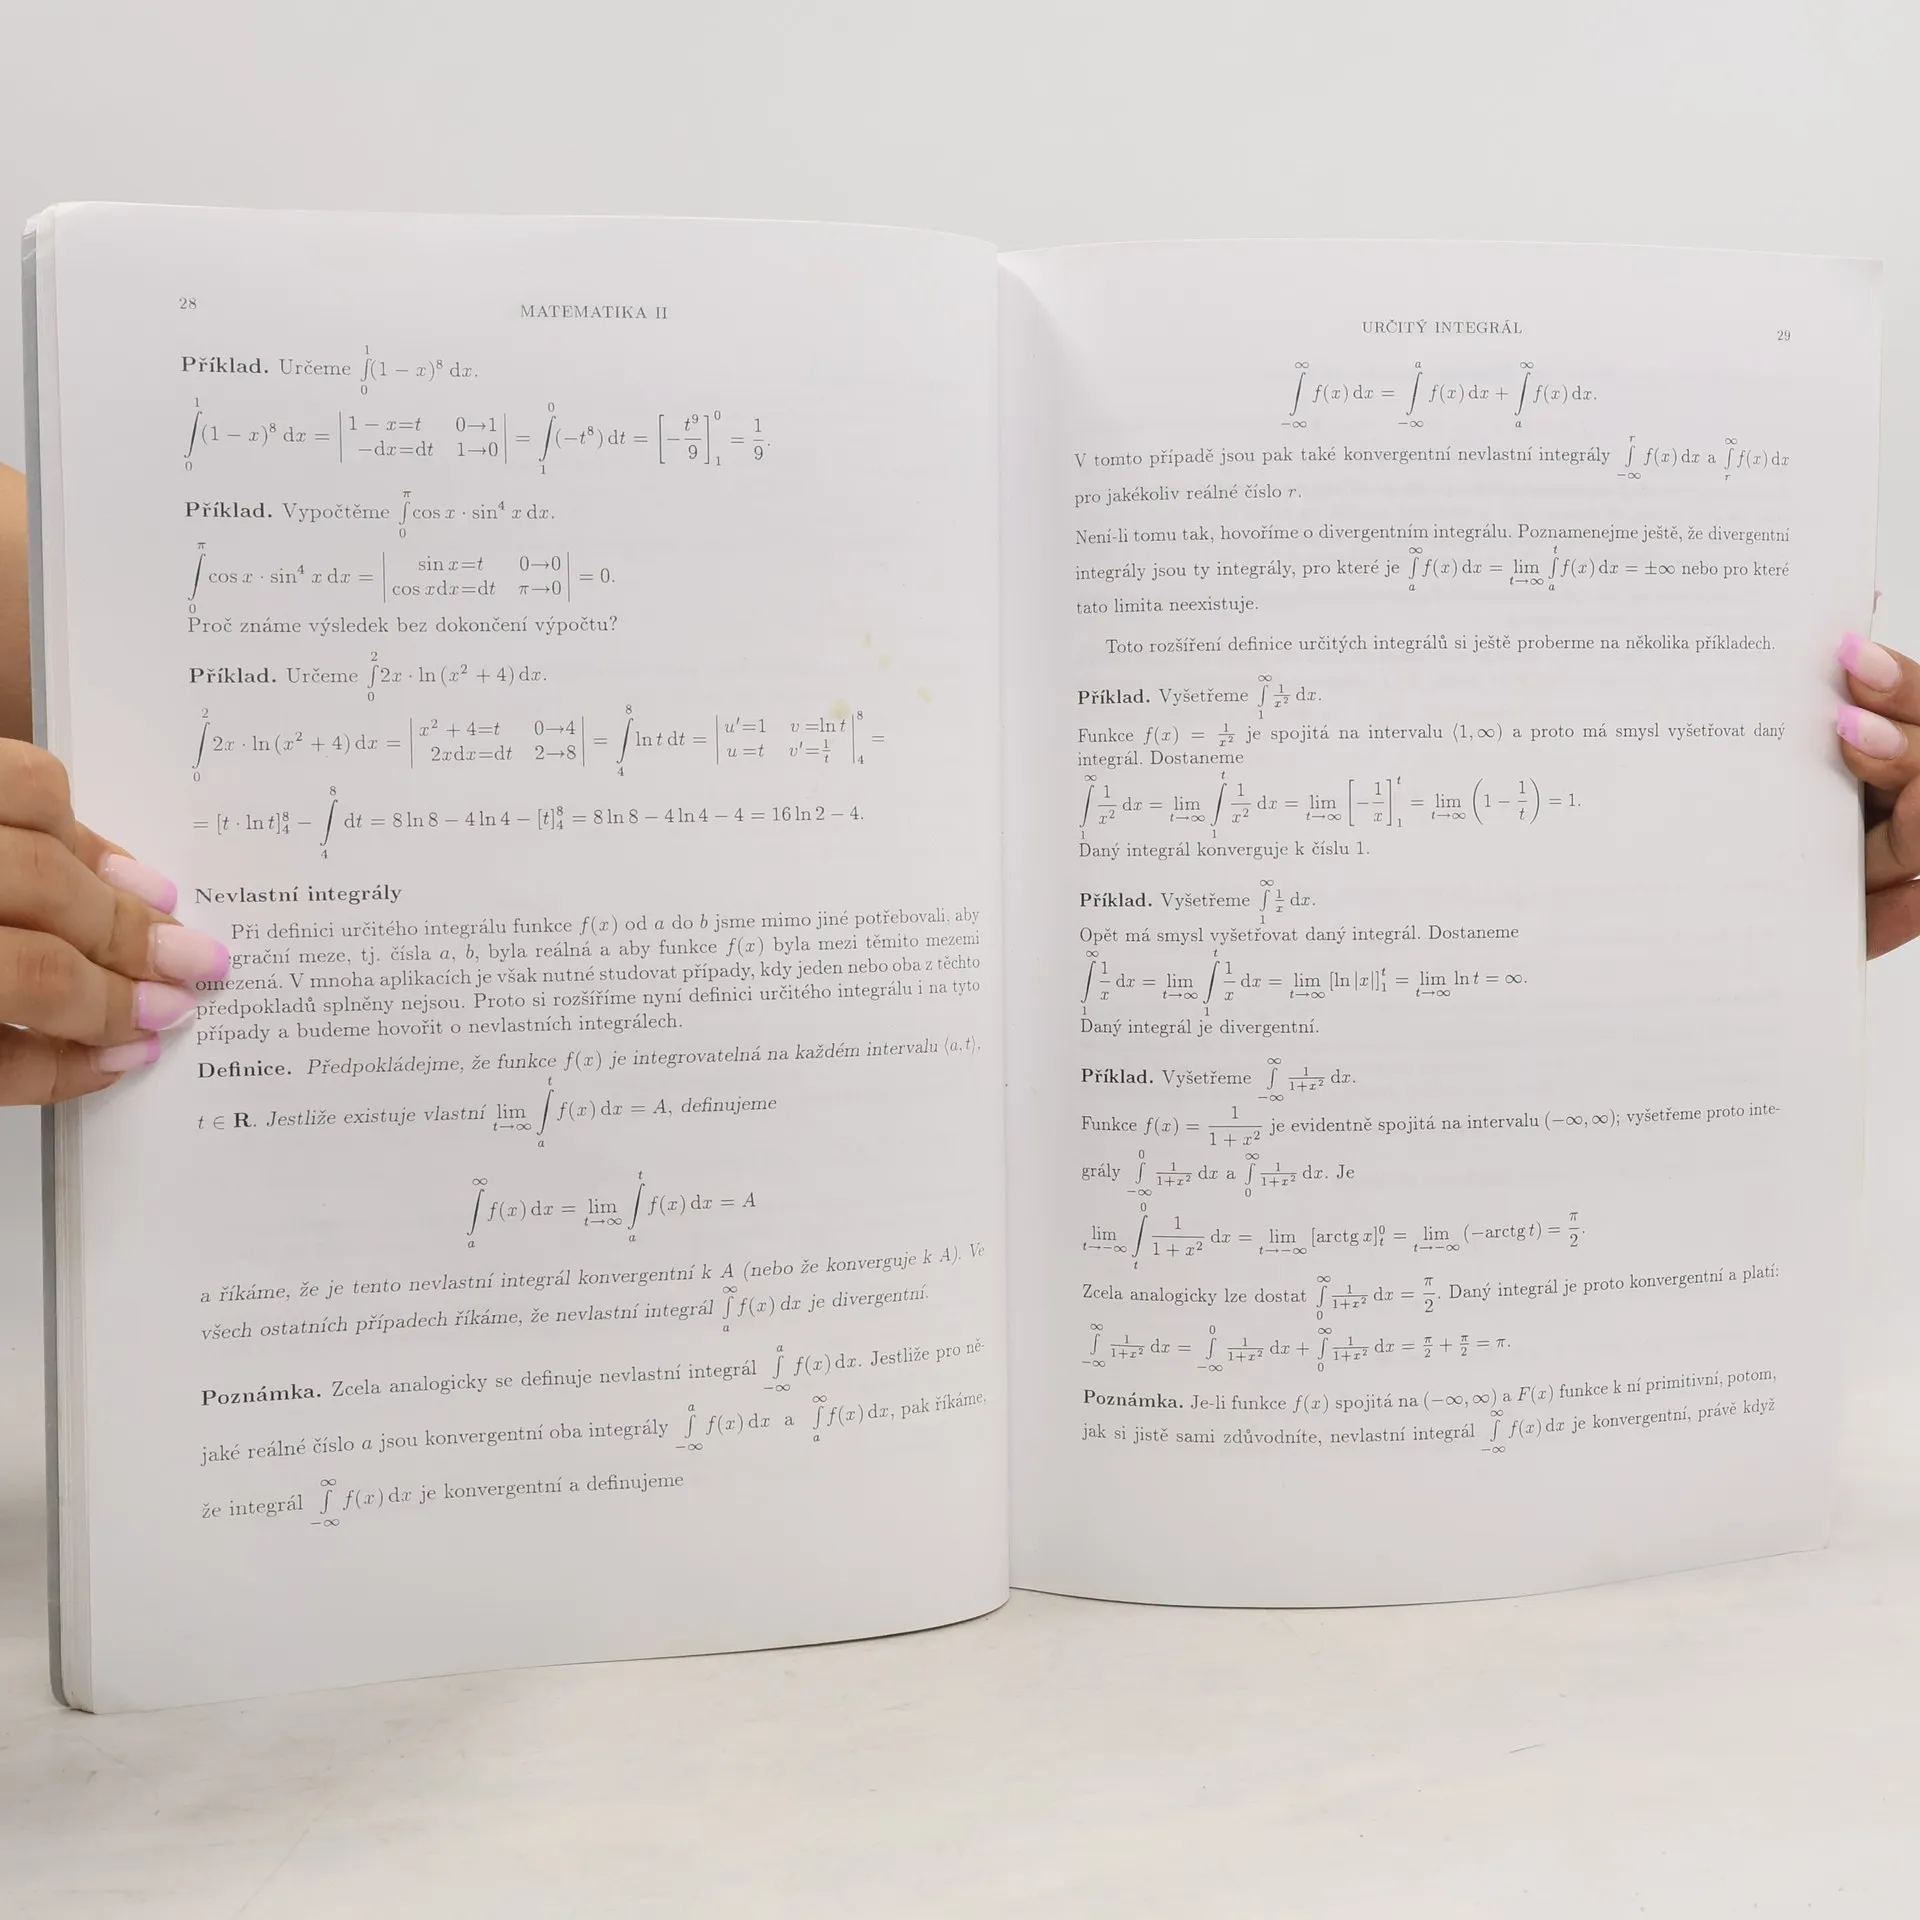 28
MATEMATIKA II
Příklad. Určeme ∫₀¹(1 − x)⁸ dx.
∫₀¹(1 − x)⁸ dx = | 1 − x=t 0→1 −dx=dt 1→0 | = ∫₁⁰(−t⁸) dt = [−t⁹/9]₁⁰ = 1/9.
Příklad. Vypočtěme ∫₀^π cos x · sin⁴ x dx.
∫₀^π cos x · sin⁴ x dx = | sin x=t 0→0 cos xdx=dt π→0 | = 0.
Proč známe výsledek bez dokončení výpočtu?
Příklad. Určeme ∫₀² 2x · ln (x² + 4) dx.
∫₀² 2x · ln (x² + 4) dx = | x² + 4=t 0→4 2xdx=dt 2→8 | = ∫₄⁸ ln t dt = | u′=1 v =ln t u =t v′=1/t |₄⁸ =
= [t · ln t]₄⁸ − ∫₄⁸ dt = 8 ln 8 − 4 ln 4 − [t]₄⁸ = 8 ln 8 − 4 ln 4 − 4 = 16 ln 2 − 4.
Nevlastní integrály
Při definici určitého integrálu funkce f(x) od a do b jsme mimo jiné potřebovali, aby
grační meze, tj. čísla a, b, byla reálná a aby funkce f(x) byla mezi těmito mezemi
omezená. V mnoha aplikacích je však nutné studovat případy, kdy jeden nebo oba z těchto
předpokladů splněny nejsou. Proto si rozšíříme nyní definici určitého integrálu i na tyto
případy a budeme hovořit o nevlastních integrálech.
Definice. Předpokládejme, že funkce f(x) je integrovatelná na každém intervalu ⟨a, t⟩,
t ∈ R. Jestliže existuje vlastní lim_{t→∞} ∫ₐᵗ f(x) dx = A, definujeme
∫ₐ^∞ f(x) dx = lim_{t→∞} ∫ₐᵗ f(x) dx = A
a říkáme, že je tento nevlastní integrál konvergentní k A (nebo že konverguje k A). Ve
všech ostatních případech říkáme, že nevlastní integrál ∫ₐ^∞ f(x) dx je divergentní.
Poznámka. Zcela analogicky se definuje nevlastní integrál ∫_{−∞}^a f(x) dx. Jestliže pro ně-
jaké reálné číslo a jsou konvergentní oba integrály ∫_{−∞}^a f(x) dx a ∫ₐ^∞ f(x) dx, pak říkáme,
že integrál ∫_{−∞}^∞ f(x) dx je konvergentní a definujeme
URČITÝ INTEGRÁL
29
∫_{−∞}^∞ f(x) dx = ∫_{−∞}^a f(x) dx + ∫ₐ^∞ f(x) dx.
V tomto případě jsou pak také konvergentní nevlastní integrály ∫_{−∞}^r f(x) dx a ∫_r^∞ f(x) dx
pro jakékoliv reálné číslo r.
Není-li tomu tak, hovoříme o divergentním integrálu. Poznamenejme ještě, že divergentní
integrály jsou ty integrály, pro které je ∫ₐ^∞ f(x) dx = lim_{t→∞} ∫ₐᵗ f(x) dx = ±∞ nebo pro které
tato limita neexistuje.
Toto rozšíření definice určitých integrálů si ještě proberme na několika příkladech.
Příklad. Vyšetřeme ∫₁^∞ 1/x² dx.
Funkce f(x) = 1/x² je spojitá na intervalu ⟨1, ∞) a proto má smysl vyšetřovat daný
integrál. Dostaneme
∫₁^∞ 1/x² dx = lim_{t→∞} ∫₁ᵗ 1/x² dx = lim_{t→∞} [−1/x]₁ᵗ = lim_{t→∞} (1 − 1/t) = 1.
Daný integrál konverguje k číslu 1.
Příklad. Vyšetřeme ∫₁^∞ 1/x dx.
Opět má smysl vyšetřovat daný integrál. Dostaneme
∫₁^∞ 1/x dx = lim_{t→∞} ∫₁ᵗ 1/x dx = lim_{t→∞} [ln |x|]₁ᵗ = lim_{t→∞} ln t = ∞.
Daný integrál je divergentní.
Příklad. Vyšetřeme ∫_{−∞}^∞ 1/(1+x²) dx.
Funkce f(x) = 1/(1 + x²) je evidentně spojitá na intervalu (−∞, ∞); vyšetřeme proto inte-
grály ∫_{−∞}^0 1/(1+x²) dx a ∫₀^∞ 1/(1+x²) dx. Je
lim_{t→−∞} ∫ₜ⁰ 1/(1 + x²) dx = lim_{t→−∞} [arctg x]ₜ⁰ = lim_{t→−∞} (−arctg t) = π/2.
Zcela analogicky lze dostat ∫₀^∞ 1/(1+x²) dx = π/2. Daný integrál je proto konvergentní a platí:
∫_{−∞}^∞ 1/(1+x²) dx = ∫_{−∞}^0 1/(1+x²) dx + ∫₀^∞ 1/(1+x²) dx = π/2 + π/2 = π.
Poznámka. Je-li funkce f(x) spojitá na (−∞, ∞) a F(x) funkce k ní primitivní, potom,
jak si jistě sami zdůvodníte, nevlastní integrál ∫_{−∞}^∞ f(x) dx je konvergentní, právě když